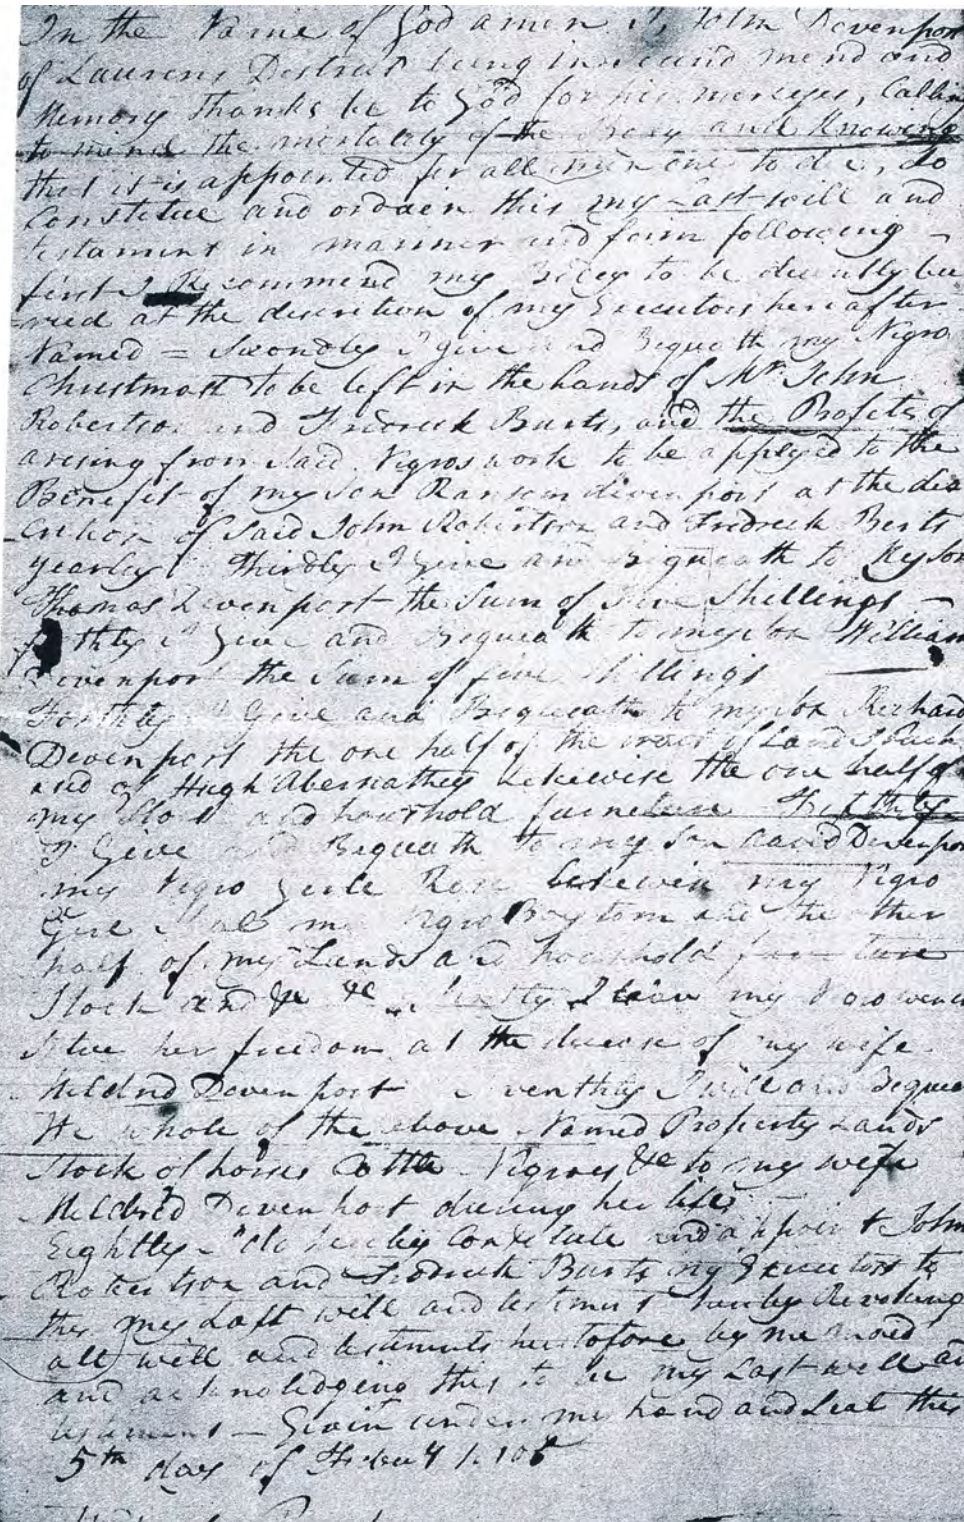 In the Name of God amen I, John Devenport
of Laurens Destrect being in sound mend and
Memory Thanks be to God for his merceyes, Calling
to mind the mortality of the Body and Knowing
that it is appointed for all men one to die, do
Constitue and ordain this my Last will and
testament in manner and form following —
first I Recommend my Body to be decently bu
ried at the discretion of my Executors hereafter
Named = Secondly I give and Bequeath my Nigro
Christmast to be left in the hands of Mr John
Robertson and Fredreck Burts, and the Profets of
aresing from Said Nigros work to be applyed to the
Benefit of my son Ransom divenport at the dis
cretion of Said John Robertson and Fredreck Berts
yearly thirdly I Give and Bequeath to My Son
Thomas Devenport the Sum of Five Shillings —
I Give and Bequeath to my son William
Devenport the Sum of five Shillings
Forthly I Give and Bequeath to my son Richard
Devenport the one half of the tract of Land I Purch
of Hugh Abernathey Likewise the one half of
my Stock and houshold furneture Fifthly
I Give and Bequeath to my Son david Devenpor
my Nigro Girle Rose likewise my Nigro
Girl my Nigro Boy tom and the other
half of my Lands and houshold furneture
Stock and &c &c I my Nigro wench
her freedom at the decease of my wife
Mildred Devenport I will and Beque
the whole of the above Named Property Lands
Stock of horses Cattle Nigroes &c to my wife
Mildred Devenport dureing her life
Eightly I do hereby Constetute and appoint John
Robertson and Fredreck Burts my Executors to
this my Last will and testiment hereby Revokeing
all will and testiments heretofore by me maid
and acknoledgeing this to be my Last will and
testiment — Givin under my hand and Seal this
5th day of